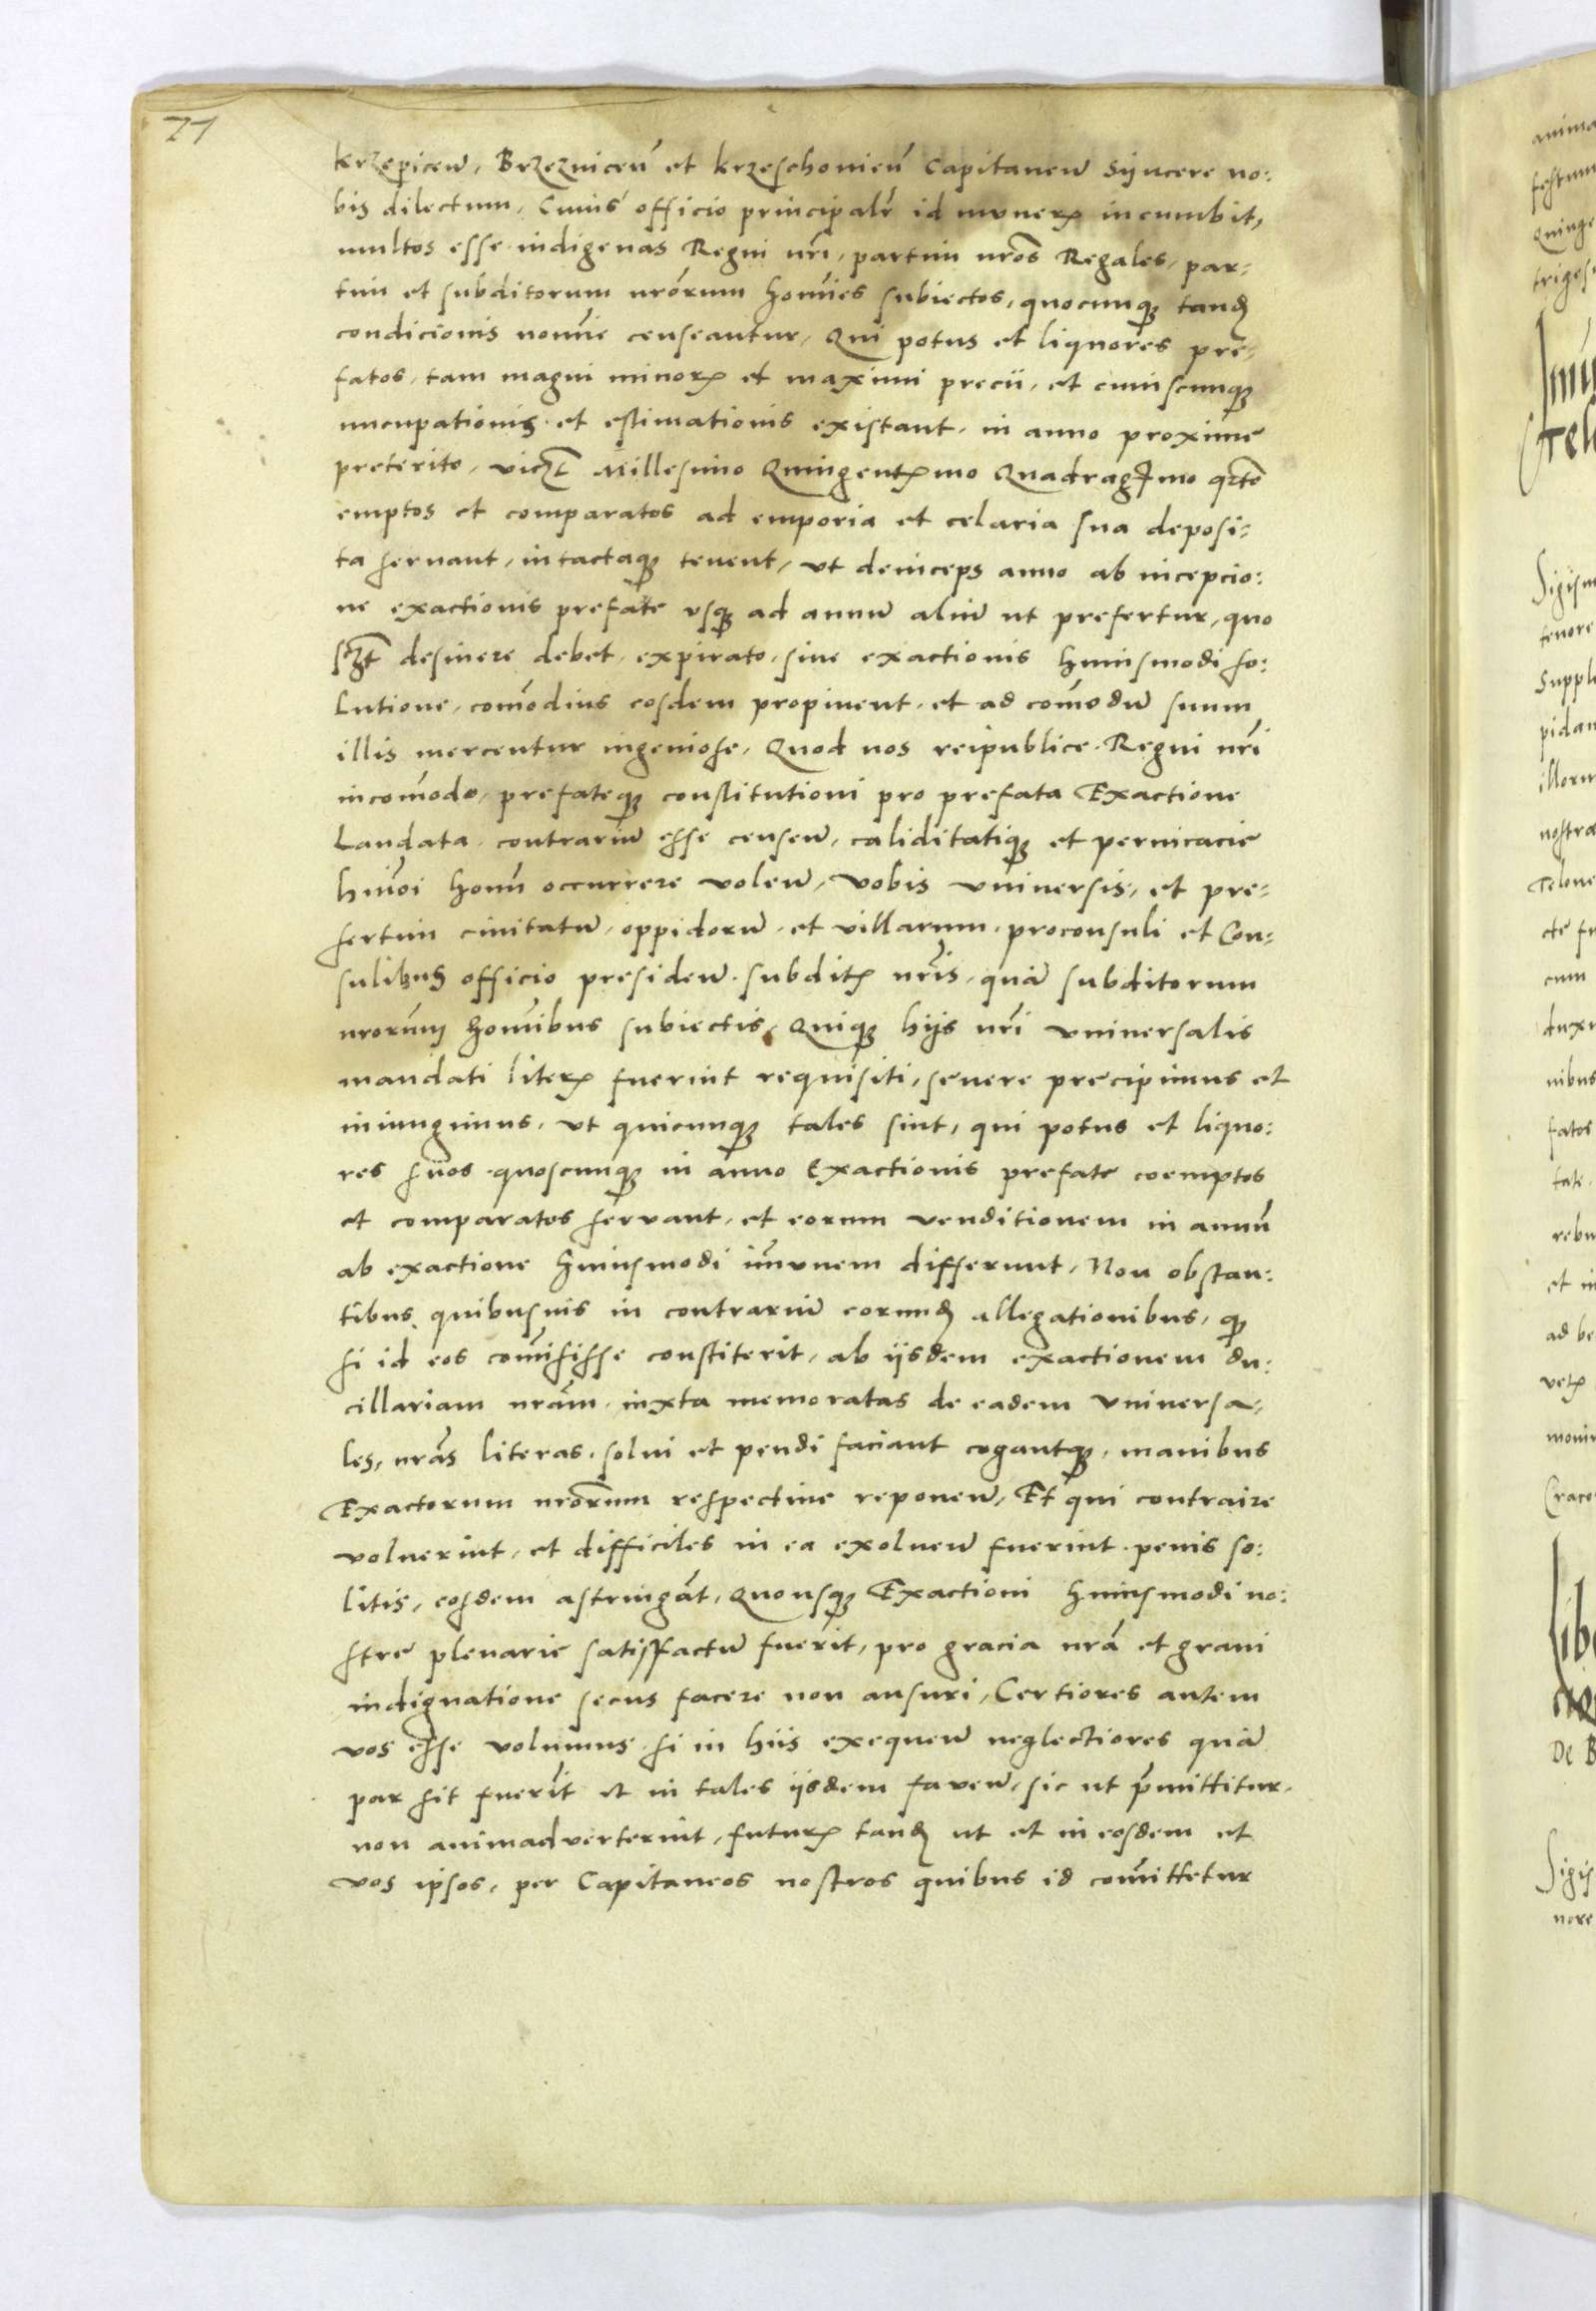 71
krzepiceñ, Brzezniceñ et krzeschovieñ Capitaneum Syncere no:
bis dilectum, Cuius officio principalr̃ id muneris incumbit,
multos esse indigenas Regni nr̃i, partim nr̃os Regales, par-
tim et subditorum nr̃orum homĩes subiectos, quocunq; tandẽ
condicionis nomĩe censeantur, Qui potus et liquores pre-
fatos, tam magni minoris et maximi precii, et cuiuscunq;
nucupationis et estimationis existant, in anno proxime
preterito, viczt Millesimo Quingentesimo Quadragesimo qrto
emptos et comparatos ad emporia et celaria sua deposi-
ta servant, intactaq; tenent, ut deinceps anno ab incepcio:
ne exactionis prefate usq; ad annũ aliũ ut prefertur, quo
sczt desinere debet, expirato, sine exactionis huiusmodi so:
lutione, com̃odius eosdem propinent, et ad com̃odũ suum
illis mercentur ingeniose, Quod nos reipublice Regni nr̃i
incom̃odo, prefateq; constitutioni pro prefata Exactione
Laudata, contrariũ esse censeñ, caliditatiq; et pervicacie
huiõi homĩn occurrere voleñ, Vobis universis, et pre-
sertim civitatũ, oppidorũ, et villarum, proconsuli et Con-
sulibus officio presideñ, subditis nr̃is, quã subditorum
nr̃orum homĩbus subiectis, Quiq; hijs nr̃i universalis
mandati literis fuerint requisiti, severe precipimus et
iniungimus, ut quicunq; tales sint, qui potus et liquo:
res suos quoscunq; in anno Exactionis prefate coemptos
et comparatos servant, et eorum venditionem in annũ
ab exactione huiusmodi im̃unem differunt, Non obstan:
tibus quibusvis in contrariũ eorundẽ allegationibus, q;
si id eos com̃isisse constiterit, ab ijsdem exactionem du:
cillariam nr̃am, iuxta memoratas de eadem Universa-
les, nr̃as literas, solvi et pendi faciant cogantq;, manibus
Exactorum nr̃orum respective reponeñ, Et qui contraire
voluerint, et difficiles in ea exolveñ fuerint, penis so:
litis, eosdem astringãt, Quousq; Exactioni huiusmodi no:
stre plenarie satisfactũ fuerit, pro gracia nr̃a et gravi
indignatione secus facere non ausuri, Certiores autem
vos esse volumus, si in hiis exequeñ neglectiores quã
par sit fuerĩt et in tales ijsdem faveñ, sic ut p̃mittitur,
non animadverterint, futuris tandẽ ut et in eosdem et
vos ipsos, per Capitaneos nostros quibus id com̃ittetur